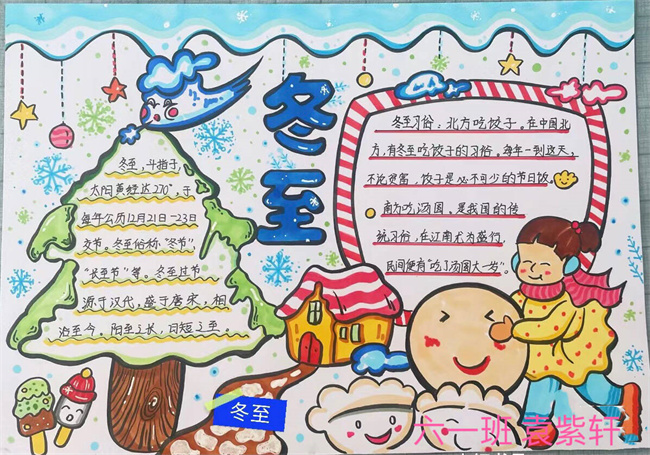 冬至
冬至,斗指子,
太阳黄经达270°,于
每年公历12月21日-23日
交节。冬至俗称“冬节”
“长至节”等。冬至过节
源于汉代,盛于唐宋,相
沿至今。阳至之长,日短之至。
冬至习俗:北方吃饺子。在中国北
方,有冬至吃饺子的习俗。每年一到这天,
不论贫富,饺子是必不可少的节日饭。
南方吃汤圆,是我国的传
统习俗,在江南尤为盛行,
民间便有“吃了汤圆大一岁”。
冬至
六一班袁紫轩